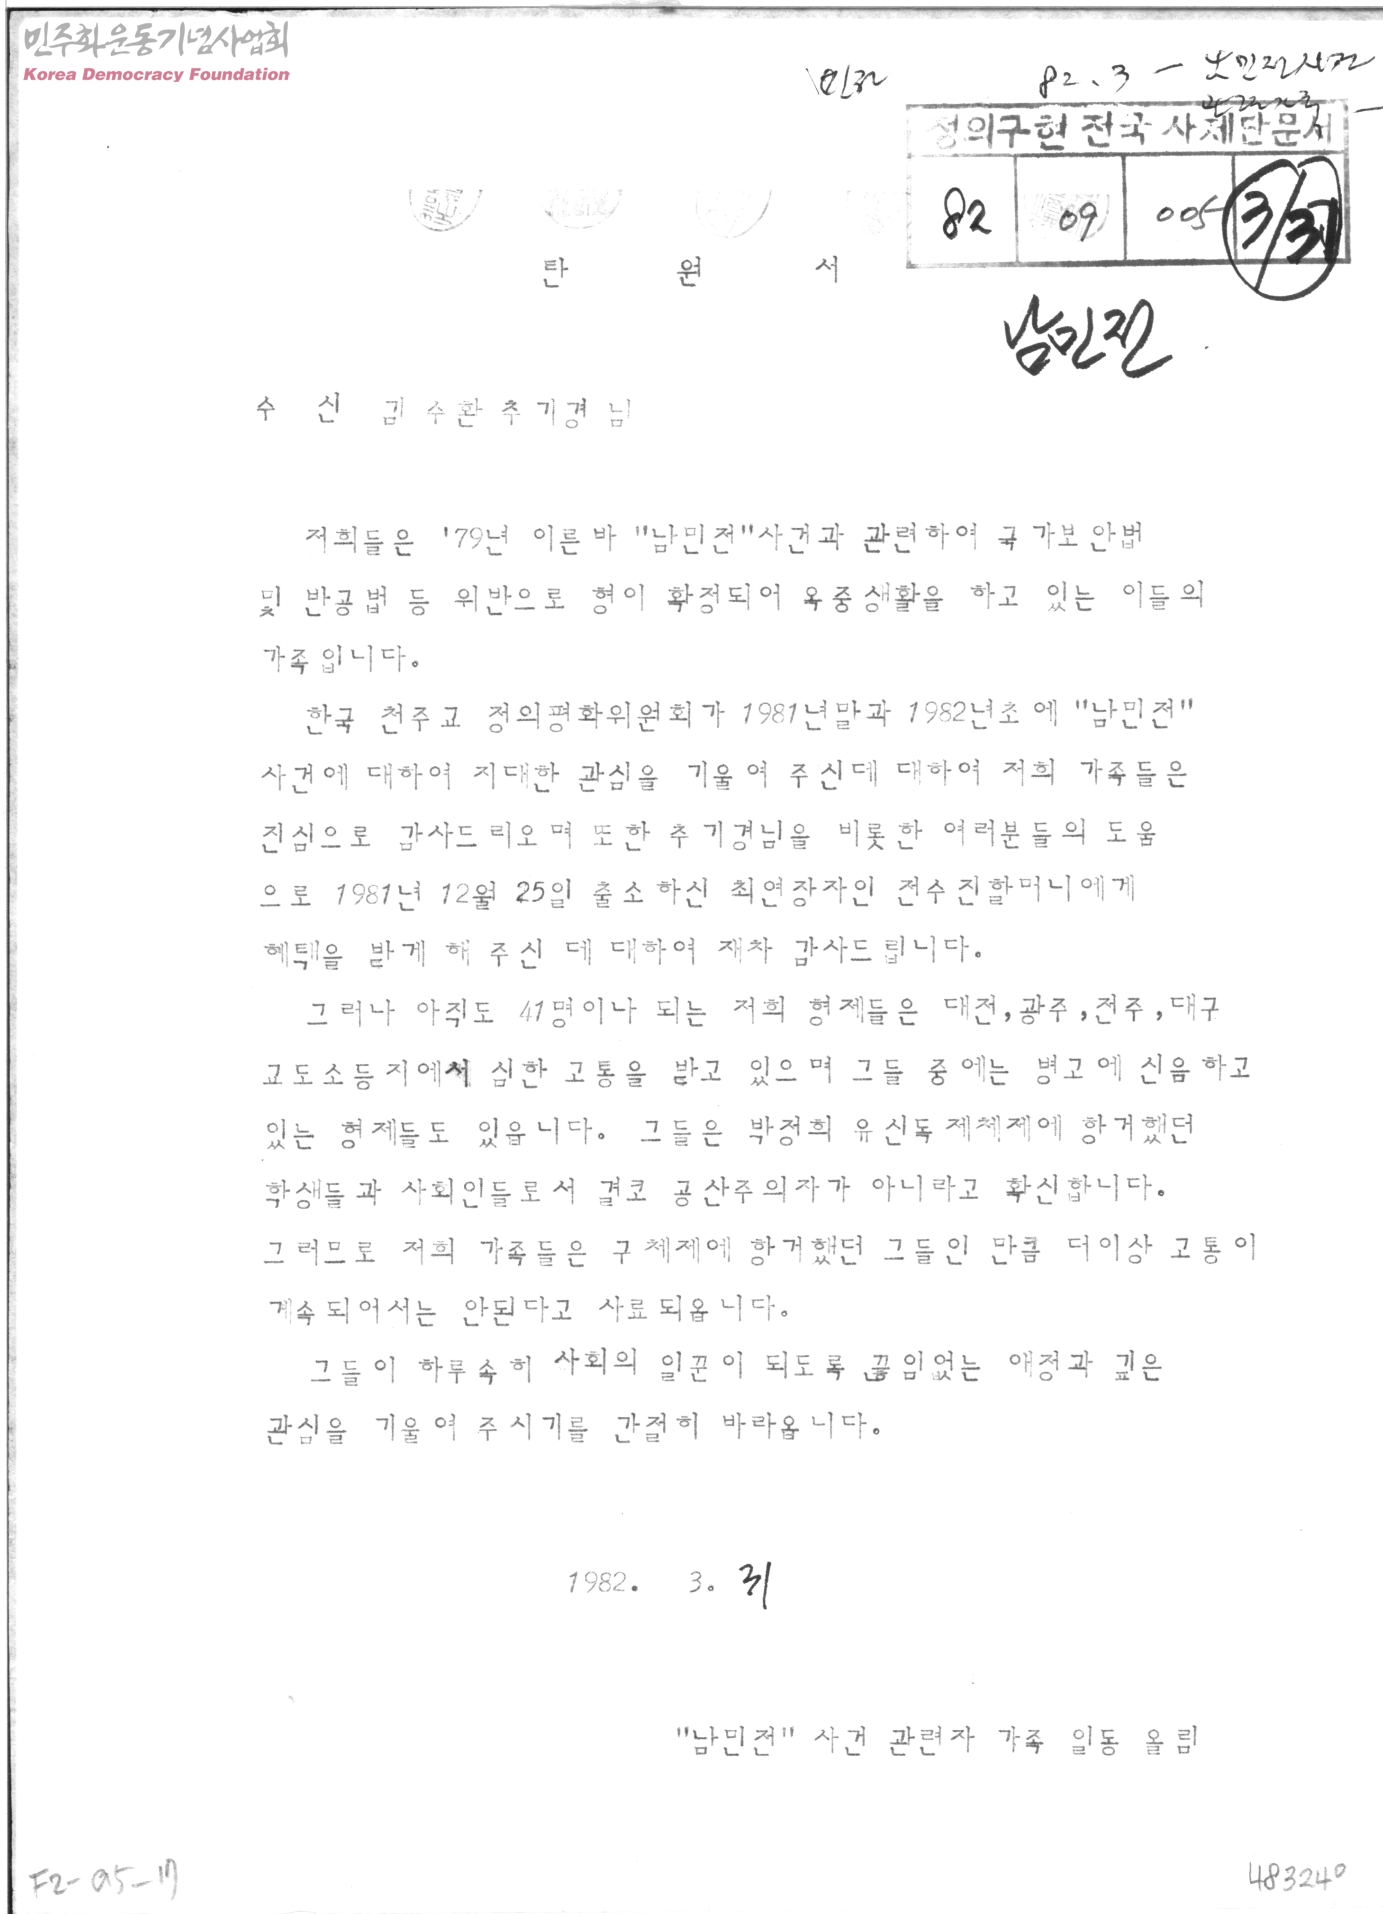 민주화운동기념사업회
Korea Democracy Foundation
82.3 - 남민전사건
가족
정의구현 전국 사제단문서
82 09 005 3/31
탄 원 서
남민전
수 신 김수환추기경님
저희들은 '79년 이른바 "남민전"사건과 관련하여 국가보안법
및 반공법 등 위반으로 형이 확정되어 옥중생활을 하고 있는 이들의
가족입니다.
한국 천주교 정의평화위원회가 1981년말과 1982년초에 "남민전"
사건에 대하여 지대한 관심을 기울여 주신데 대하여 저희 가족들은
진심으로 감사드리오며 또한 추기경님을 비롯한 여러분들의 도움
으로 1981년 12월 25일 출소하신 최연장자인 전수진할머니에게
혜택을 받게 해 주신 데 대하여 재차 감사드립니다.
그러나 아직도 41명이나 되는 저희 형제들은 대전,광주,전주,대구
교도소등지에서 심한 고통을 받고 있으며 그들 중에는 병고에 신음하고
있는 형제들도 있읍니다. 그들은 박정희 유신독재체제에 항거했던
학생들과 사회인들로서 결코 공산주의자가 아니라고 확신합니다.
그러므로 저희 가족들은 구 체제에 항거했던 그들인 만큼 더이상 고통이
계속되어서는 안된다고 사료되옵니다.
그들이 하루속히 사회의 일꾼이 되도록 끊임없는 애정과 깊은
관심을 기울여 주시기를 간절히 바라옵니다.
1982. 3. 31
"남민전" 사건 관련자 가족 일동 올림
F2-05-17
483240